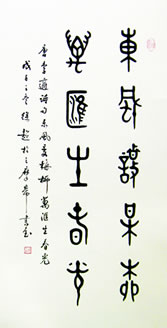 東風變梅柳
萬匯生春光
唐李適詩句東風變梅柳萬匯生春光